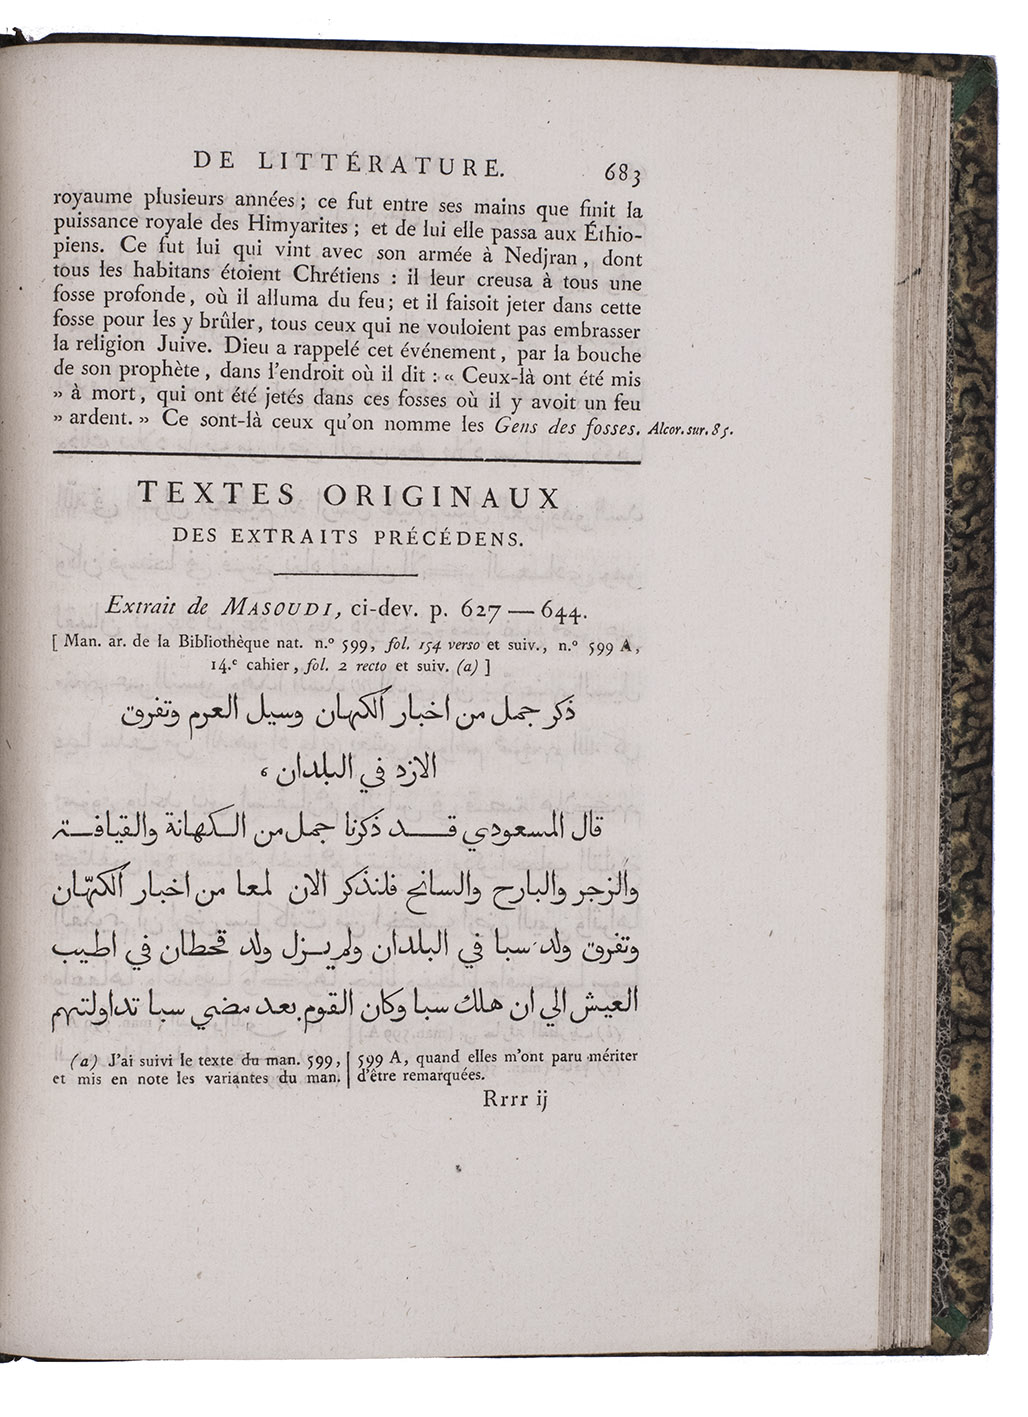 DE LITTÉRATURE. 683
royaume plusieurs années ; ce fut entre ses mains que finit la
puissance royale des Himyarites ; et de lui elle passa aux Éthio-
piens. Ce fut lui qui vint avec son armée à Nedjran, dont
tous les habitans étoient Chrétiens : il leur creusa à tous une
fosse profonde, où il alluma du feu ; et il faisoit jeter dans cette
fosse pour les y brûler, tous ceux qui ne vouloient pas embrasser
la religion Juive. Dieu a rappelé cet événement, par la bouche
de son prophète, dans l'endroit où il dit : « Ceux-là ont été mis
» à mort, qui ont été jetés dans ces fosses où il y avoit un feu
» ardent. » Ce sont-là ceux qu'on nomme les Gens des fosses. Alcor. sur. 85.
TEXTES ORIGINAUX
DES EXTRAITS PRÉCÉDENS.
Extrait de MASOUDI, ci-dev. p. 627 — 644.
[ Man. ar. de la Bibliothèque nat. n.° 599, fol. 154 verso et suiv., n.° 599 A,
14.e cahier, fol. 2 recto et suiv. (a) ]
ذكر جمل من اخبار الكهان وسيل العرم وتفرق
الازد في البلدان ،
قال المسعودي قد ذكرنا جمل من الكهانة والقيافة
والزجر والبارح والسانح فلنذكر الان لمعا من اخبار الكهّان
وتفرق ولد سبا في البلدان ولم يزل ولد قحطان في اطيب
العيش الي ان هلك سبا وكان القوم بعد مضي سبا تداولتهم
(a) J'ai suivi le texte du man. 599,
et mis en note les variantes du man.
599 A, quand elles m'ont paru mériter
d'être remarquées.
Rrrr ij